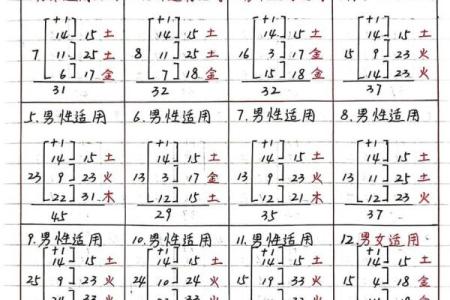 +1
14 15 土
7 11 25 土
6 17 金
31
+1
14 15 土
8 11 25 土
7 18 金
32
+1
14 15 土
16 3 17 金
15 18 金
32
+1
14 15 土
15 9 23 火
14 23 火
37
5.男性适用
+1
14 15 土
23 9 23 火
22 31 木
45
6.男性适用
+1
14 15 土
13 3 17 金
12 15 土
29
7.男性适用
+1
14 15 土
13 9 23 火
12 21 木
35
8.男性适用
+1
14 15 土
13 11 25 土
12 23 火
37
9.男性适用
+1
14 15 土
25 9 23 火
10.男性适用
+1
14 15 土
24 10 24 火
11.男性适用
+1
14 15 土
15 19 33 火
12.男女适用
+1
14 15 土
15 4 18 金